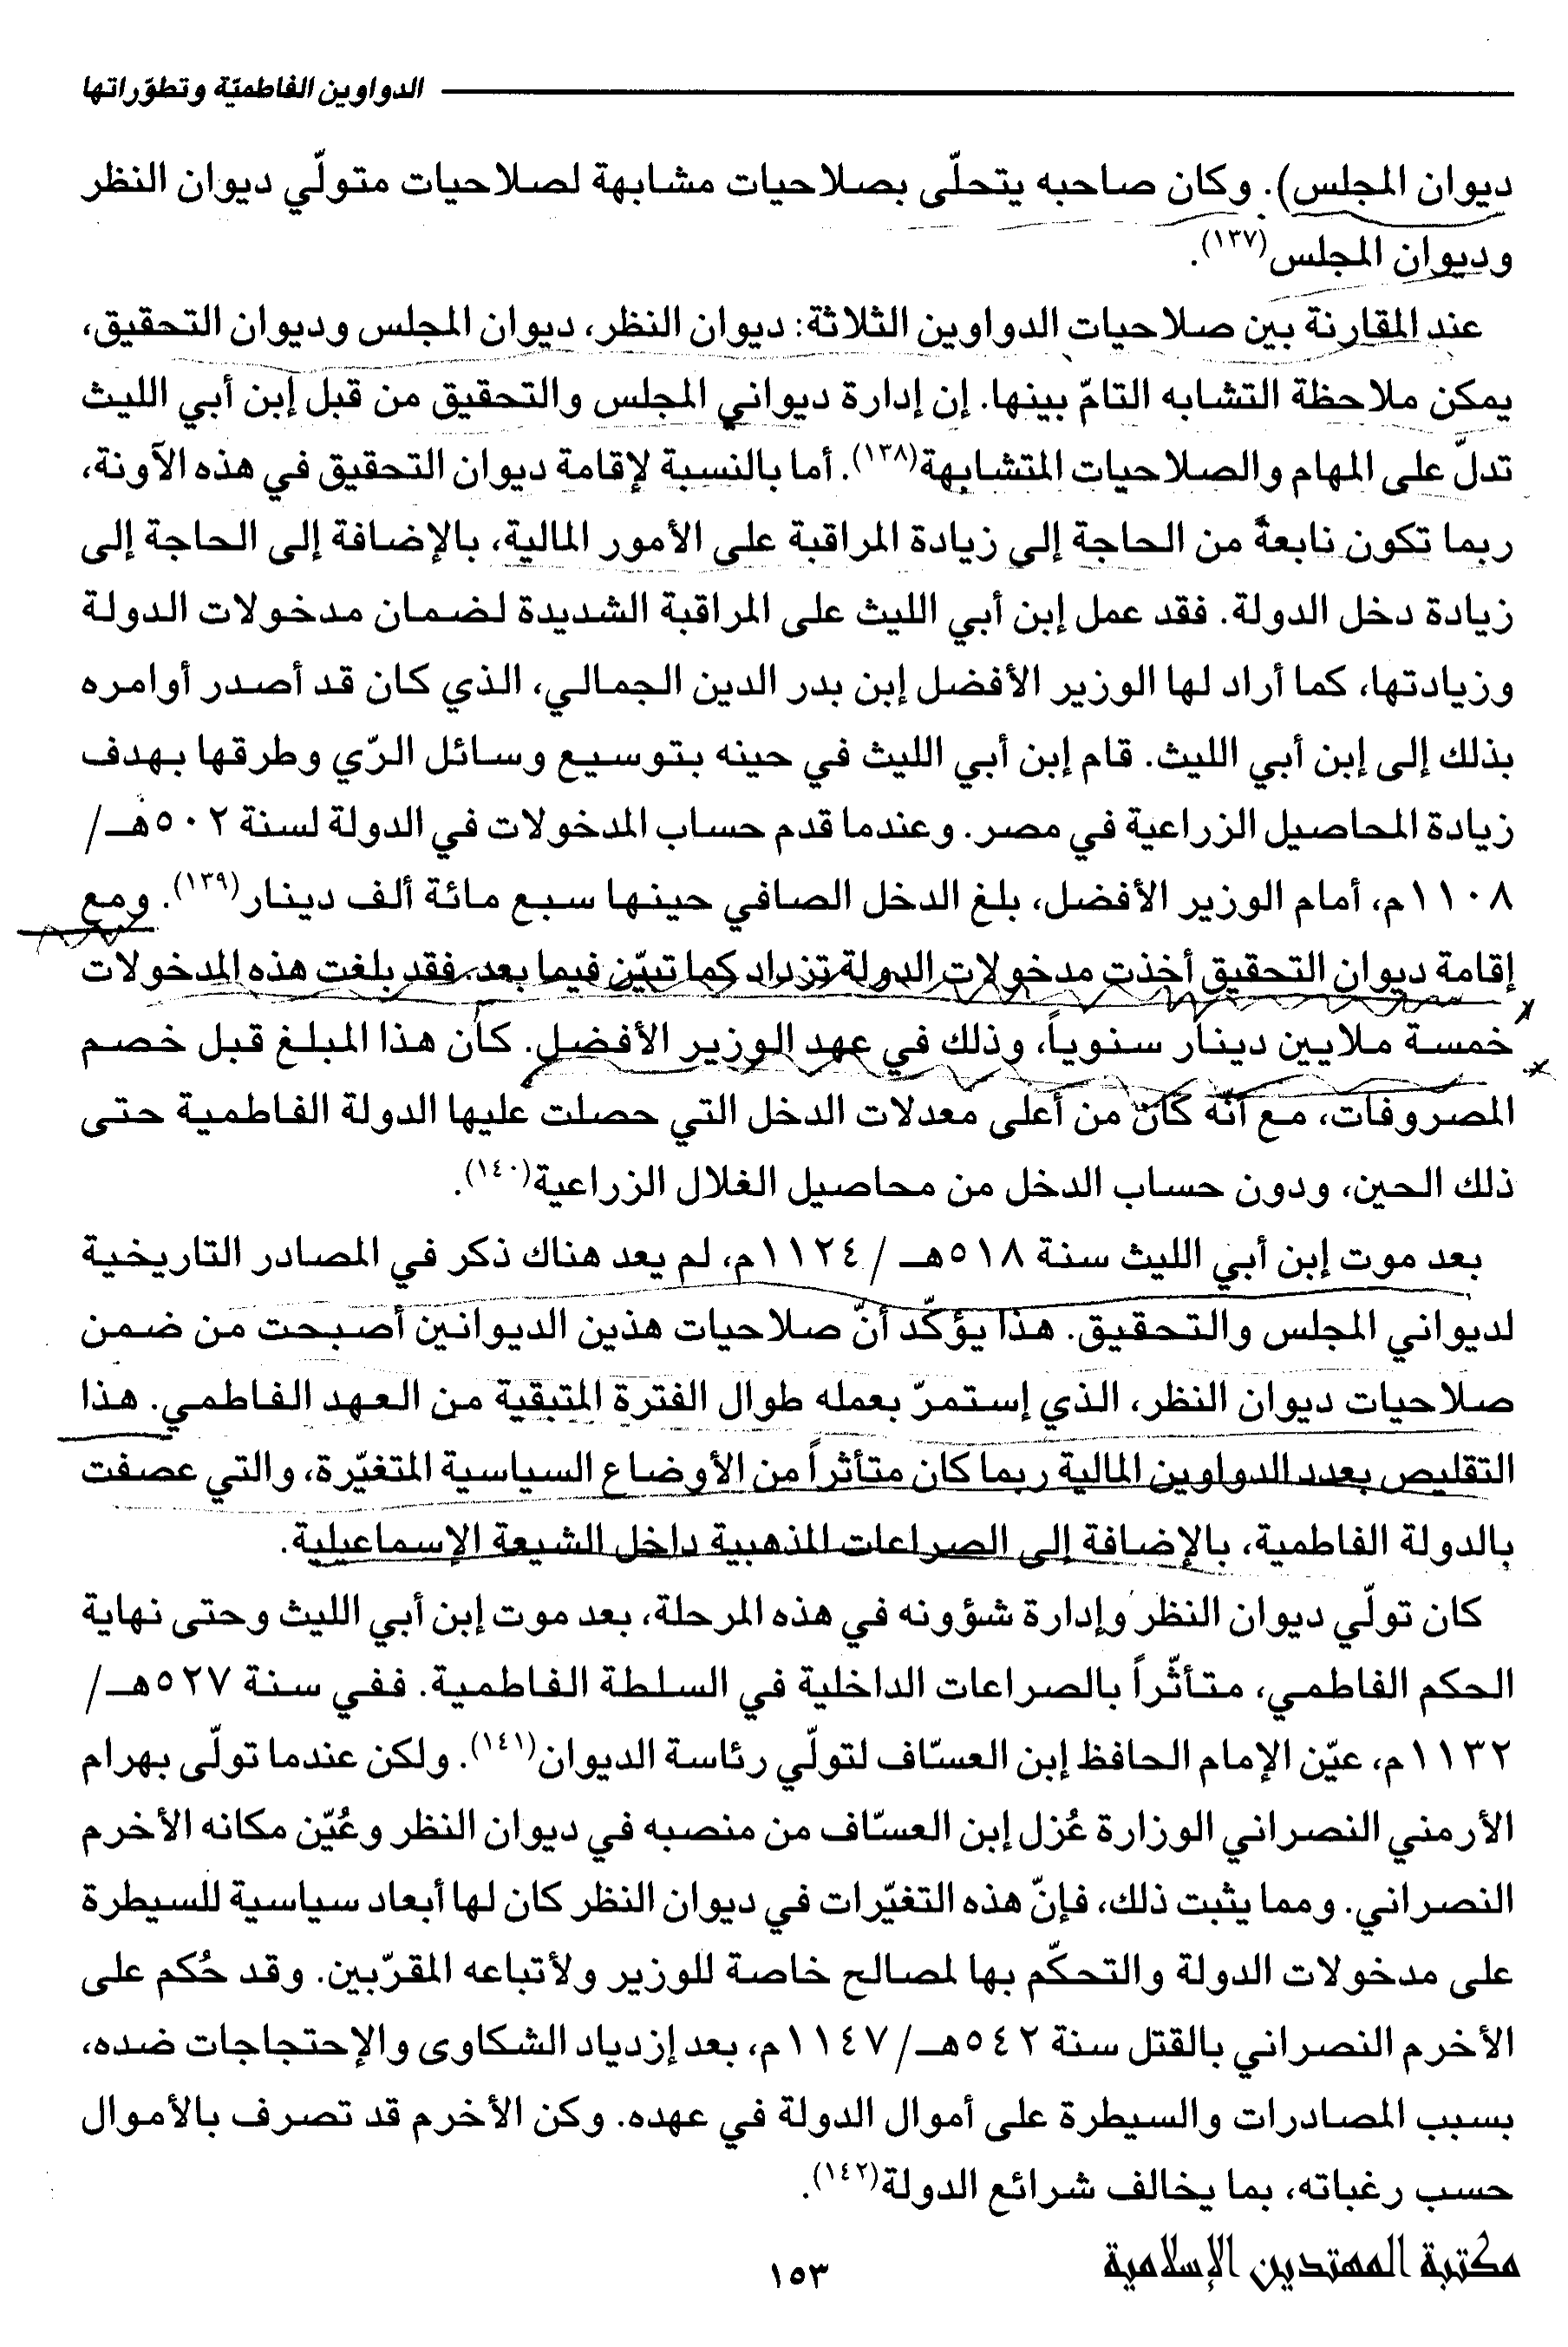 الدواوين الفاطميّة وتطوّراتها
ديوان المجلس). وكان صاحبه يتحلّى بصلاحيات مشابهة لصلاحيات متولّي ديوان النظر
وديوان المجلس(١٣٧).
عند المقارنة بين صلاحيات الدواوين الثلاثة: ديوان النظر، ديوان المجلس وديوان التحقيق،
يمكن ملاحظة التشابه التامّ بينها. إن إدارة ديواني المجلس والتحقيق من قبل إبن أبي الليث
تدلّ على المهام والصلاحيات المتشابهة(١٣٨). أما بالنسبة لإقامة ديوان التحقيق في هذه الآونة،
ربما تكون نابعةً من الحاجة إلى زيادة المراقبة على الأمور المالية، بالإضافة إلى الحاجة إلى
زيادة دخل الدولة. فقد عمل إبن أبي الليث على المراقبة الشديدة لضمان مدخولات الدولة
وزيادتها، كما أراد لها الوزير الأفضل إبن بدر الدين الجمالي، الذي كان قد أصدر أوامره
بذلك إلى إبن أبي الليث. قام إبن أبي الليث في حينه بتوسيع وسائل الرّي وطرقها بهدف
زيادة المحاصيل الزراعية في مصر. وعندما قدم حساب المدخولات في الدولة لسنة ٥٠٢هـ/
١١٠٨م، أمام الوزير الأفضل، بلغ الدخل الصافي حينها سبع مائة ألف دينار(١٣٩). ومع
إقامة ديوان التحقيق أخذت مدخولات الدولة تزداد كما تبيّن فيما بعد، فقد بلغت هذه المدخولات
خمسة ملايين دينار سنوياً، وذلك في عهد الوزير الأفضل. كان هذا المبلغ قبل خصم
المصروفات، مع أنّه كان من أعلى معدلات الدخل التي حصلت عليها الدولة الفاطمية حتى
ذلك الحين، ودون حساب الدخل من محاصيل الغلال الزراعية(١٤٠).
بعد موت إبن أبي الليث سنة ٥١٨هـ / ١١٢٤م، لم يعد هناك ذكر في المصادر التاريخية
لديواني المجلس والتحقيق. هذا يؤكّد أنّ صلاحيات هذين الديوانين أصبحت من ضمن
صلاحيات ديوان النظر، الذي إستمرّ بعمله طوال الفترة المتبقية من العهد الفاطمي. هذا
التقليص بعدد الدواوين المالية ربما كان متأثراً من الأوضاع السياسية المتغيّرة، والتي عصفت
بالدولة الفاطمية، بالإضافة إلى الصراعات المذهبية داخل الشيعة الإسماعيلية.
كان تولّي ديوان النظر وإدارة شؤونه في هذه المرحلة، بعد موت إبن أبي الليث وحتى نهاية
الحكم الفاطمي، متأثّراً بالصراعات الداخلية في السلطة الفاطمية. ففي سنة ٥٢٧هـ/
١١٣٢م، عيّن الإمام الحافظ إبن العسّاف لتولّي رئاسة الديوان(١٤١). ولكن عندما تولّى بهرام
الأرمني النصراني الوزارة عُزل إبن العسّاف من منصبه في ديوان النظر وعُيّن مكانه الأخرم
النصراني. ومما يثبت ذلك، فإنّ هذه التغيّرات في ديوان النظر كان لها أبعاد سياسية للسيطرة
على مدخولات الدولة والتحكّم بها لمصالح خاصة للوزير ولأتباعه المقرّبين. وقد حُكم على
الأخرم النصراني بالقتل سنة ٥٤٢هـ/١١٤٧م، بعد إزدياد الشكاوى والإحتجاجات ضده،
بسبب المصادرات والسيطرة على أموال الدولة في عهده. وكن الأخرم قد تصرف بالأموال
حسب رغباته، بما يخالف شرائع الدولة(١٤٢).
مكتبة المهتدين الإسلامية
١٥٣